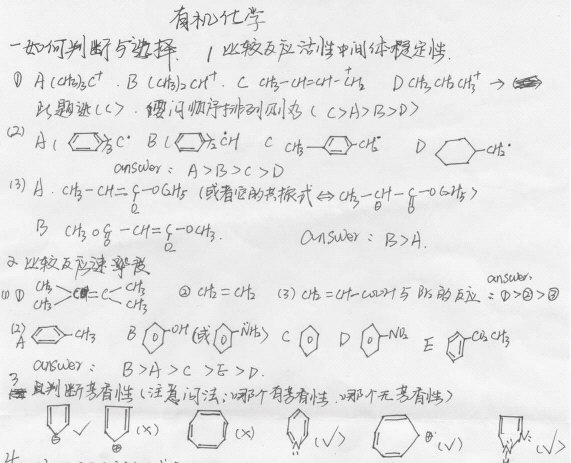 有机化学
一如何判断与选择. 1 比较反应活性中间体稳定性.
① A (CH3)3C⁺ . B (CH3)2CH⁺ . C CH3-CH=CH-CH2⁺ D CH3CH2CH2⁺ →
此题选(C). 要问顺序排列则为 (C>A>B>D)
(2) A ( )3C• B ( )2CH C CH3- -CH2• D -CH2•
answer: A>B>C>D
(3) A. CH3-CH=C-OC2H5 (或者它的共振式 ⇔ CH3-CH-C-OC2H5)
O ⊖ O
B CH3OC-CH=C-OCH3. answer: B>A.
O O
2 比较反应速率
answer:
(1) ① CH3 CH3 C=C CH3 CH3 ② CH2=CH2 (3) CH2=CH-COOH 与 Br2 的反应 : ①>②>③
(2) A -CH3 B -OH (或 -NH2) C D -NO2 E CO2CH3
answer: B>A>C>E>D.
3 判断芳香性 (注意问法: 哪个有芳香性. 哪个无芳香性)
⊖ √ ⊕ (×) (×) N (√) ⊕ (√) N N: (√)